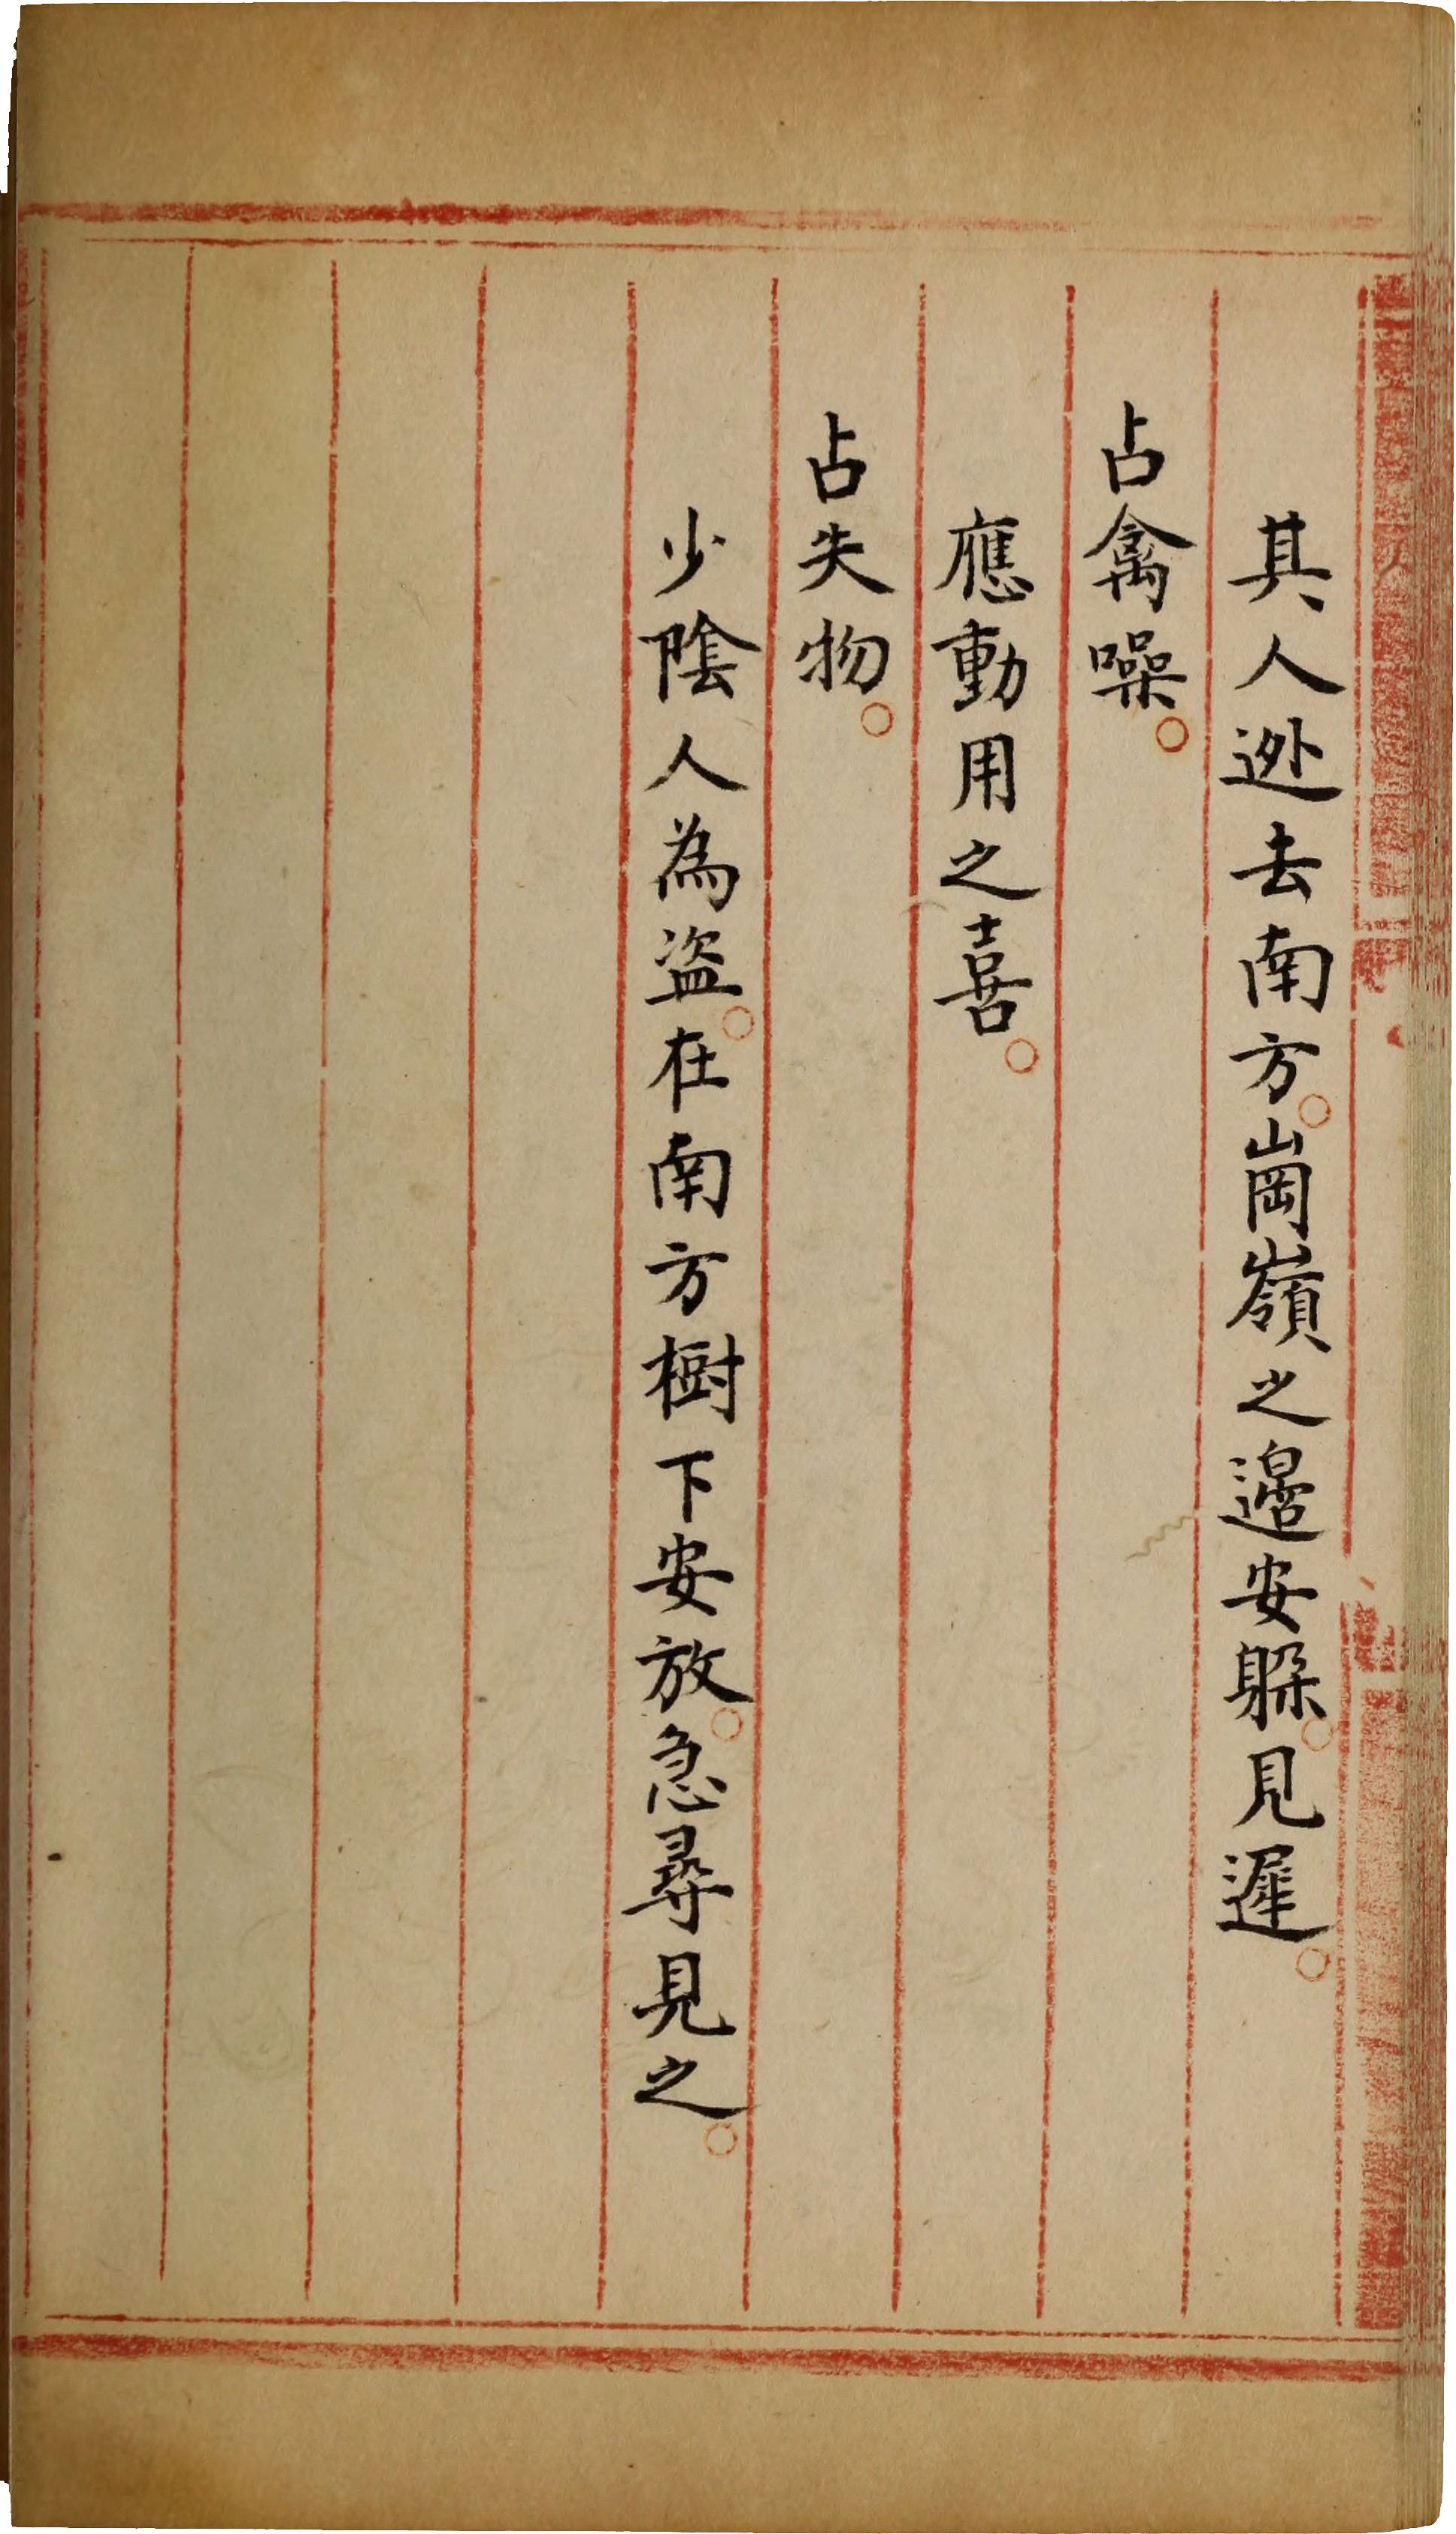 其人迯去南方。崗嶺之邉安躲。見遲。
占禽噪。
應動用之喜。
占失物。
少陰人為盗。在南方樹下安放。急尋見之。